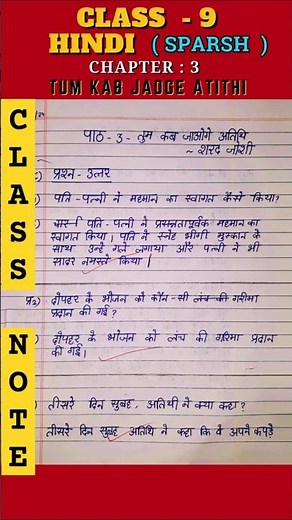 CLASS - 9
HINDI ( SPARSH )
CHAPTER : 3
TUM KAB JAOGE ATITHI
CLASS NOTE
पाठ - 3 - तुम कब जाओगे अतिथि
~ शरद जोशी
प्रश्न - उत्तर
पति - पत्नी ने मेहमान का स्वागत कैसे किया?
पति - पत्नी ने प्रसन्नतापूर्वक मेहमान का
स्वागत किया। पति ने स्नेह भीगी मुस्कान के
साथ उन्हें गले लगाया और पत्नी ने भी
सादर नमस्ते किया।
प्र2) दोपहर के भोजन को कौन - सी लंच की गरिमा
प्रदान की गई?
दोपहर के भोजन को लंच की गरिमा प्रदान
की गई।
तीसरे दिन सुबह, अतिथी ने क्या कहा?
तीसरे दिन सुबह अतिथि ने कहा कि वे अपने कपड़े